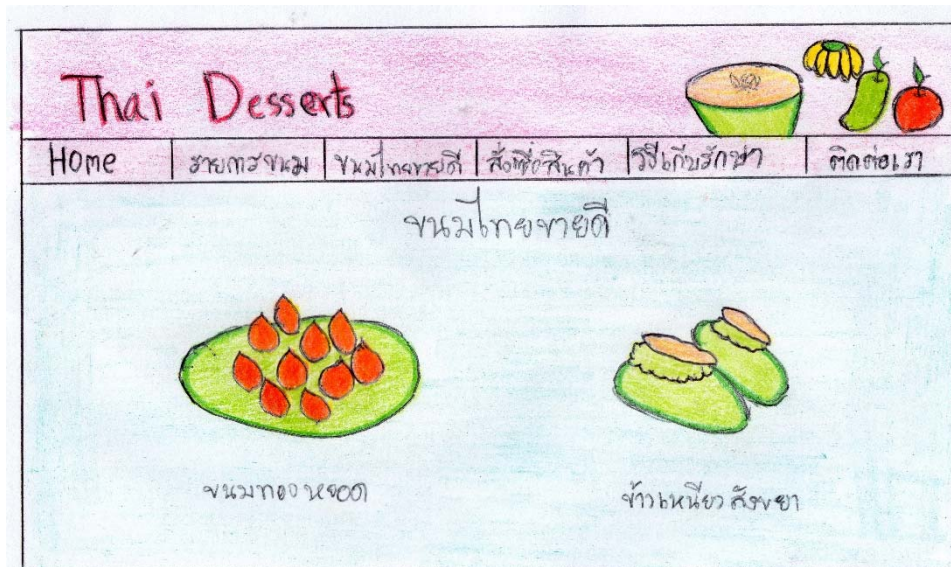 Thai Desserts
Home รายการขนม ขนมไทยขายดี สั่งซื้อสินค้า วิธีเก็บรักษา ติดต่อเรา
ขนมไทยขายดี
ขนมทองหยอด
ข้าวเหนียวสังขยา